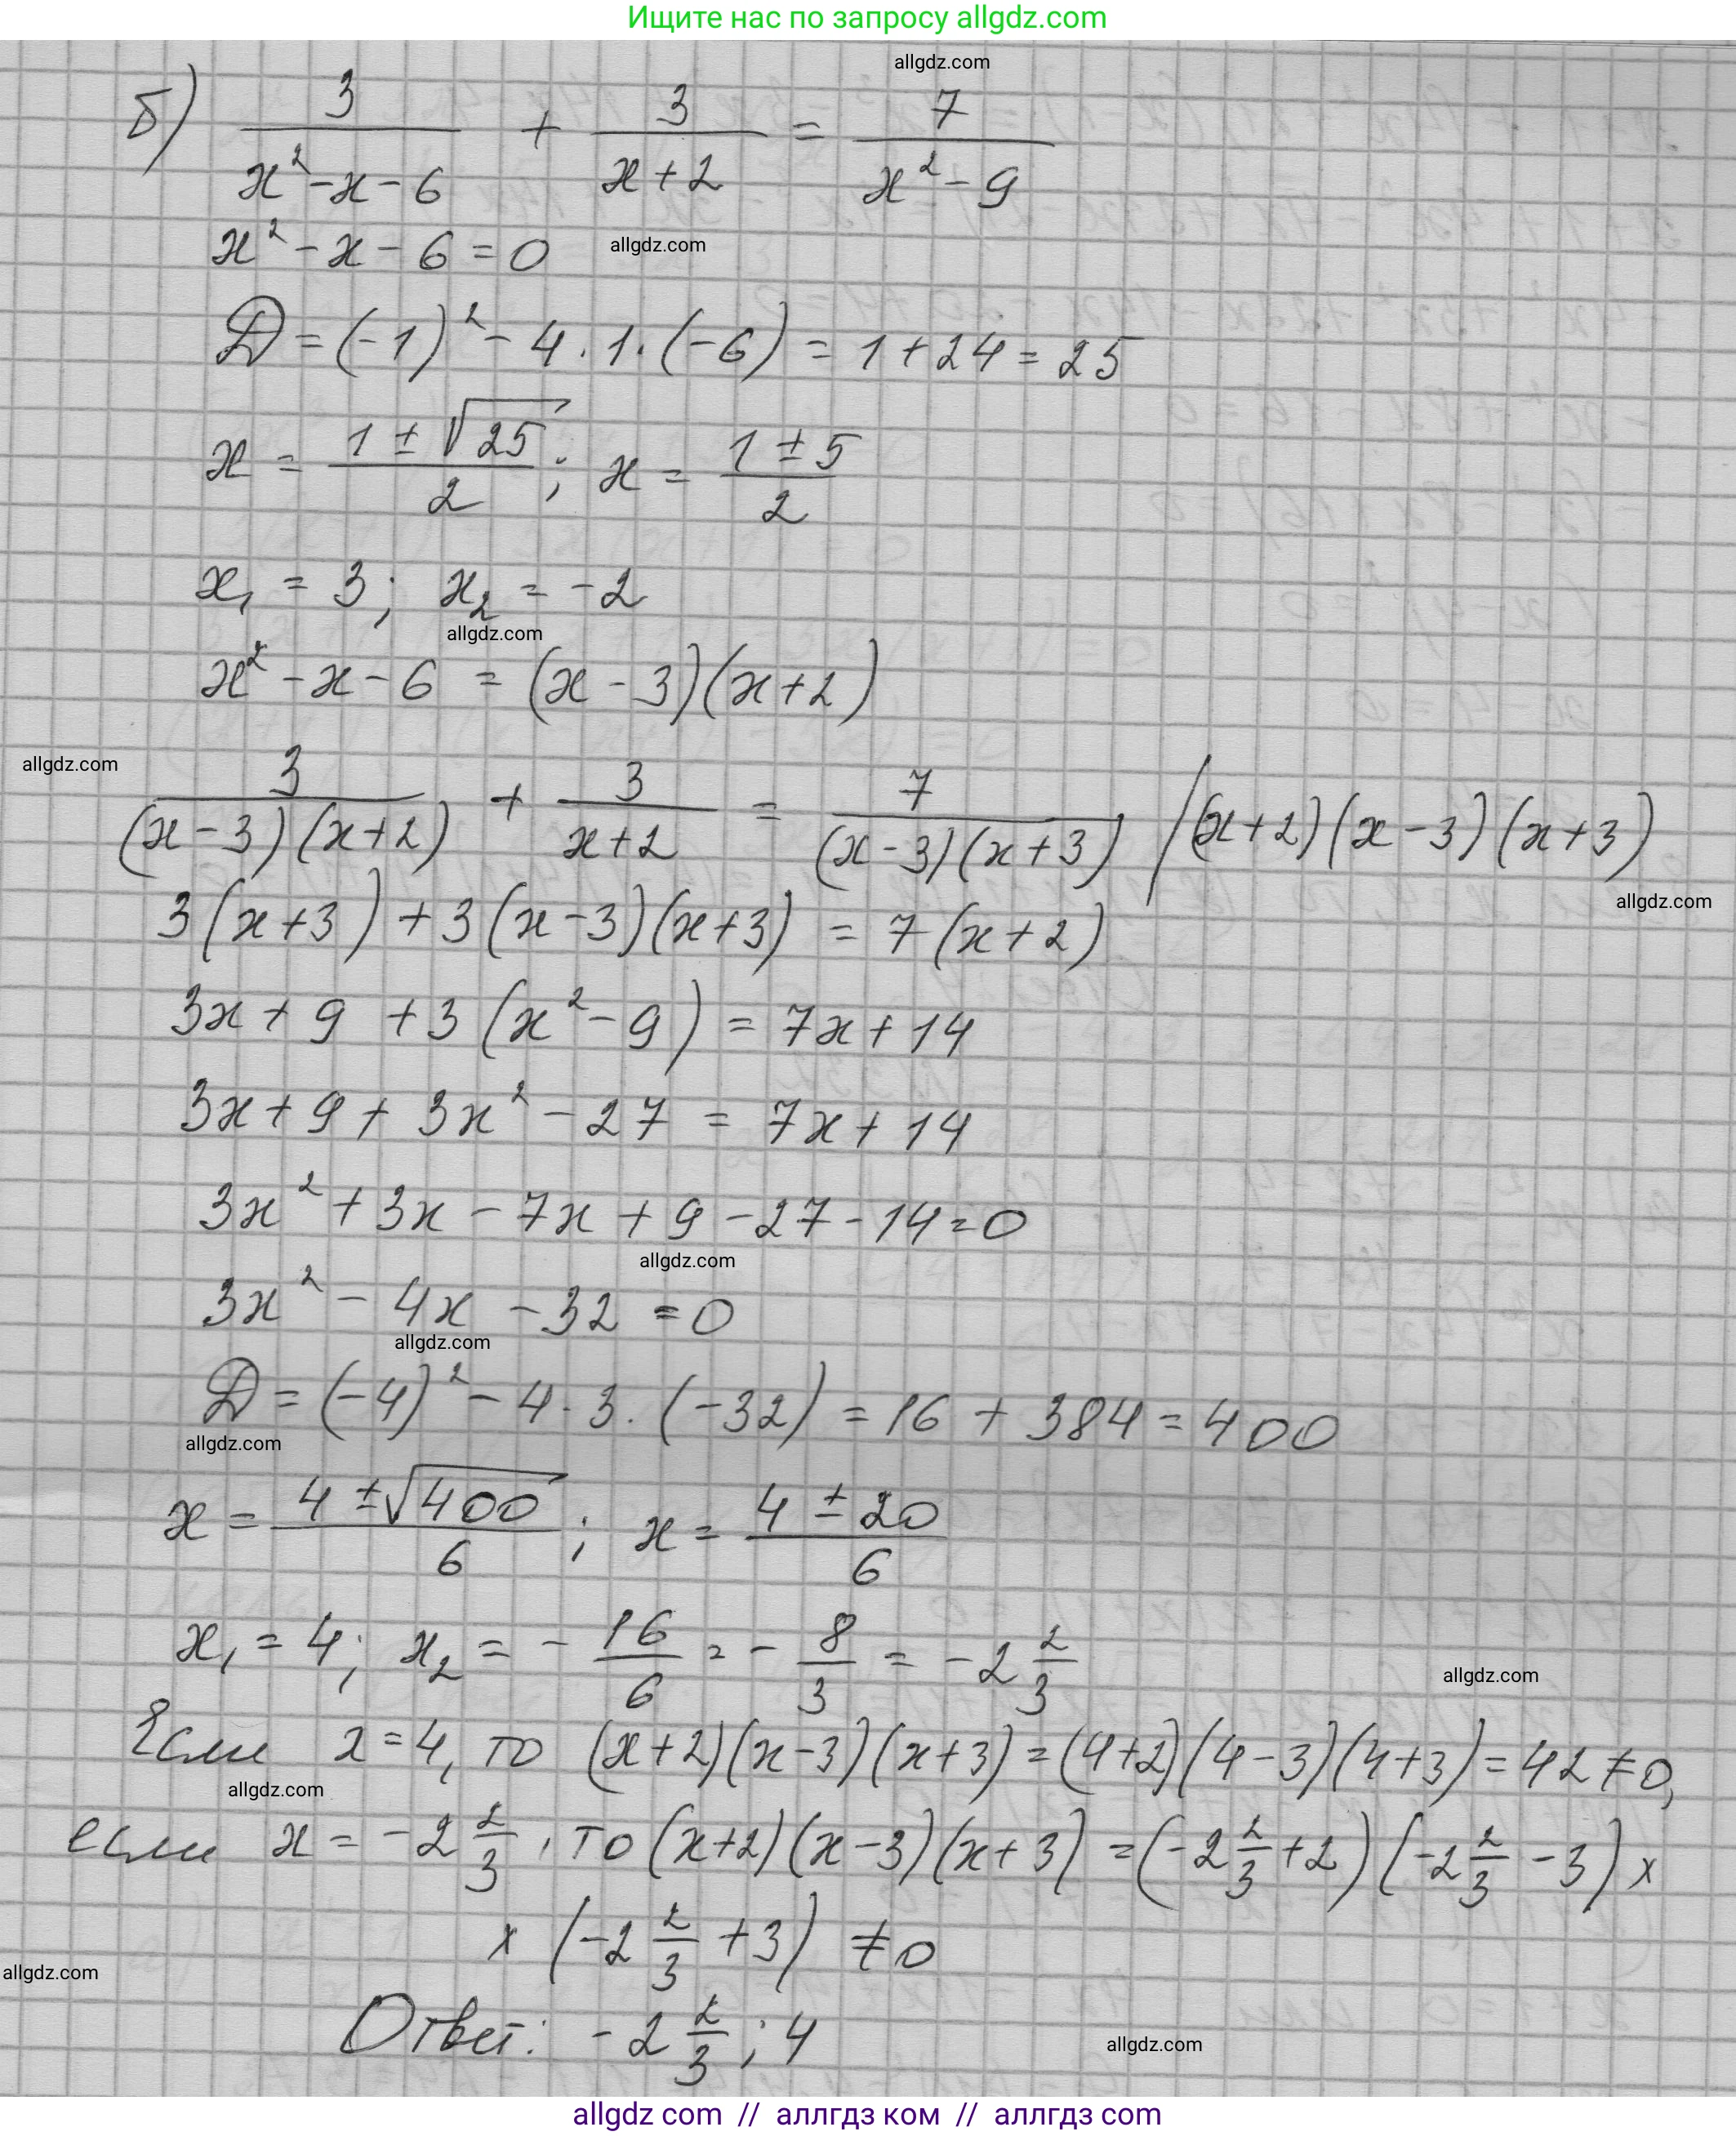 Ищите нас по запросу allgdz.com
allgdz.com
б) 3/(x²-x-6) + 3/(x+2) = 7/(x²-9)
x²-x-6=0
allgdz.com
D=(-1)²-4·1·(-6)=1+24=25
x = (1±√25)/2; x = (1±5)/2
x₁ = 3; x₂ = -2
allgdz.com
x²-x-6 = (x-3)(x+2)
allgdz.com
3/((x-3)(x+2)) + 3/(x+2) = 7/((x-3)(x+3)) /(x+2)(x-3)(x+3)
allgdz.com
3(x+3)+3(x-3)(x+3) = 7(x+2)
3x+9+3(x²-9) = 7x+14
3x+9+3x²-27 = 7x+14
3x²+3x-7x+9-27-14=0
allgdz.com
3x²-4x-32=0
allgdz.com
D=(-4)²-4·3·(-32)=16+384=400
allgdz.com
x = (4±√400)/6; x = (4±20)/6
x₁=4; x₂ = -16/6 = -8/3 = -2 2/3
allgdz.com
Если x=4, то (x+2)(x-3)(x+3)=(4+2)(4-3)(4+3)=42≠0,
allgdz.com
если x = -2 2/3, то (x+2)(x-3)(x+3) =(-2 2/3+2)(-2 2/3-3)×
×(-2 2/3+3) ≠0
allgdz.com
Ответ: -2 2/3; 4
allgdz.com
allgdz com // аллгдз ком // аллгдз com